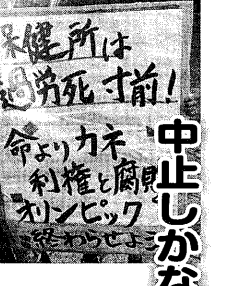 保健所は
過労死寸前!
命よりカネ
利権と腐敗
オリンピック
終わらせよう
中止しかな